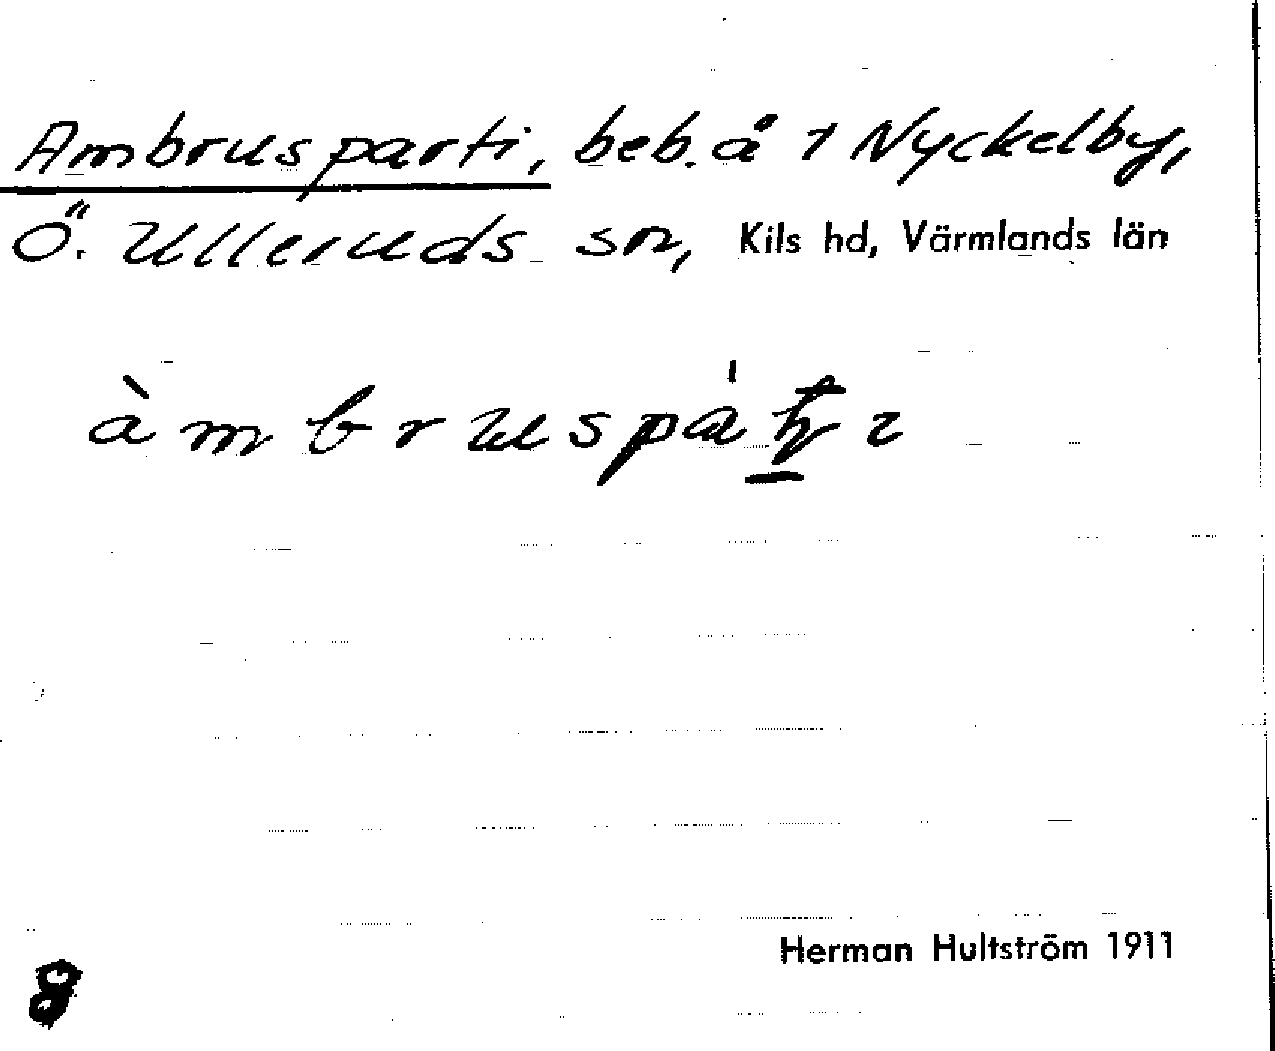 Ambrusparti, beb. å 1 Nyckelby,
Ö. Ulleruds sn, Kils hd, Värmlands län
Herman Hultström 1911
8